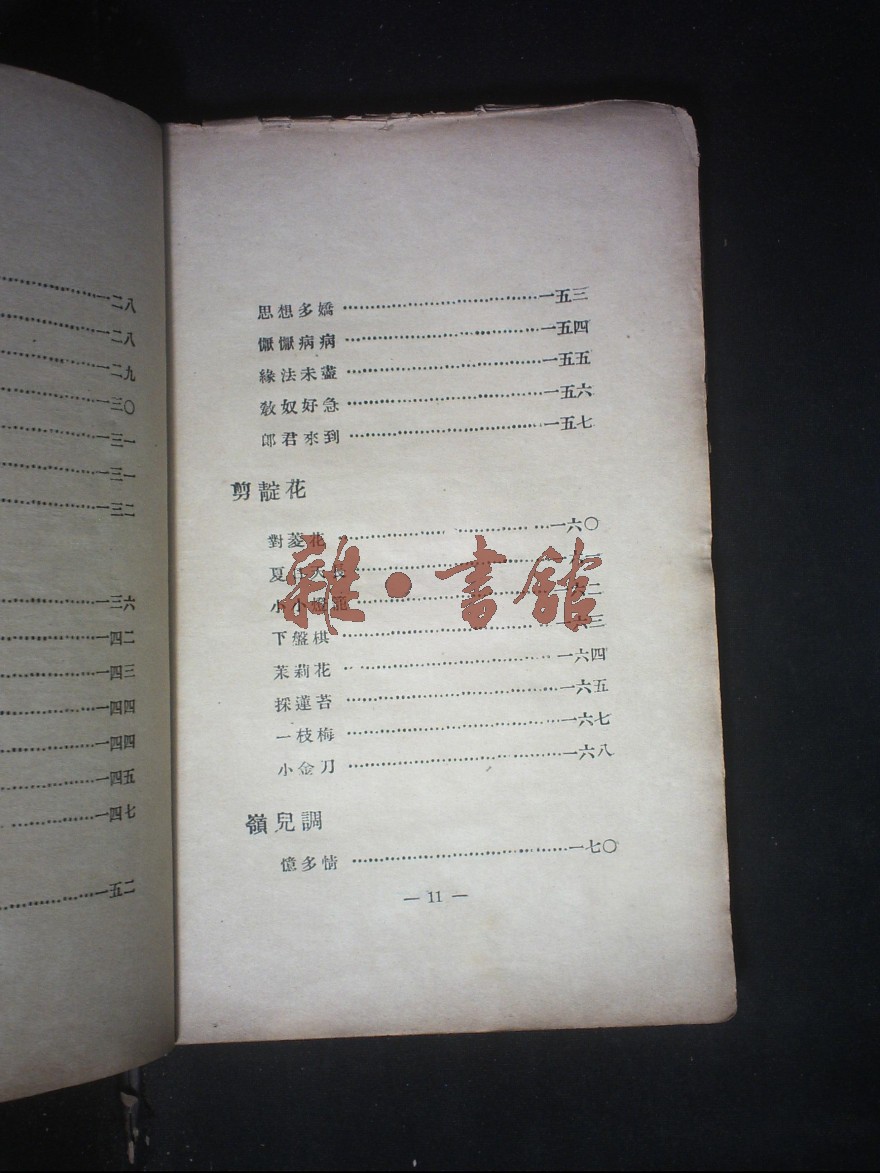 一二八
一二八
一二九
一三〇
一三一
一三一
一三二
一三六
一四二
一四三
一四四
一四四
一四五
一四七
一五二
思想多嬌…………一五三
懨懨病病…………一五四
緣法未盡…………一五五
教奴好急…………一五六
郎君來到…………一五七
剪靛花
對菱花…………一六〇
夏
小小
下盤棋…………一六三
茉莉花…………一六四
採蓮苔…………一六五
一枝梅…………一六七
小金刀…………一六八
嶺兒調
憶多情…………一七〇
— 11 —
雜·書館